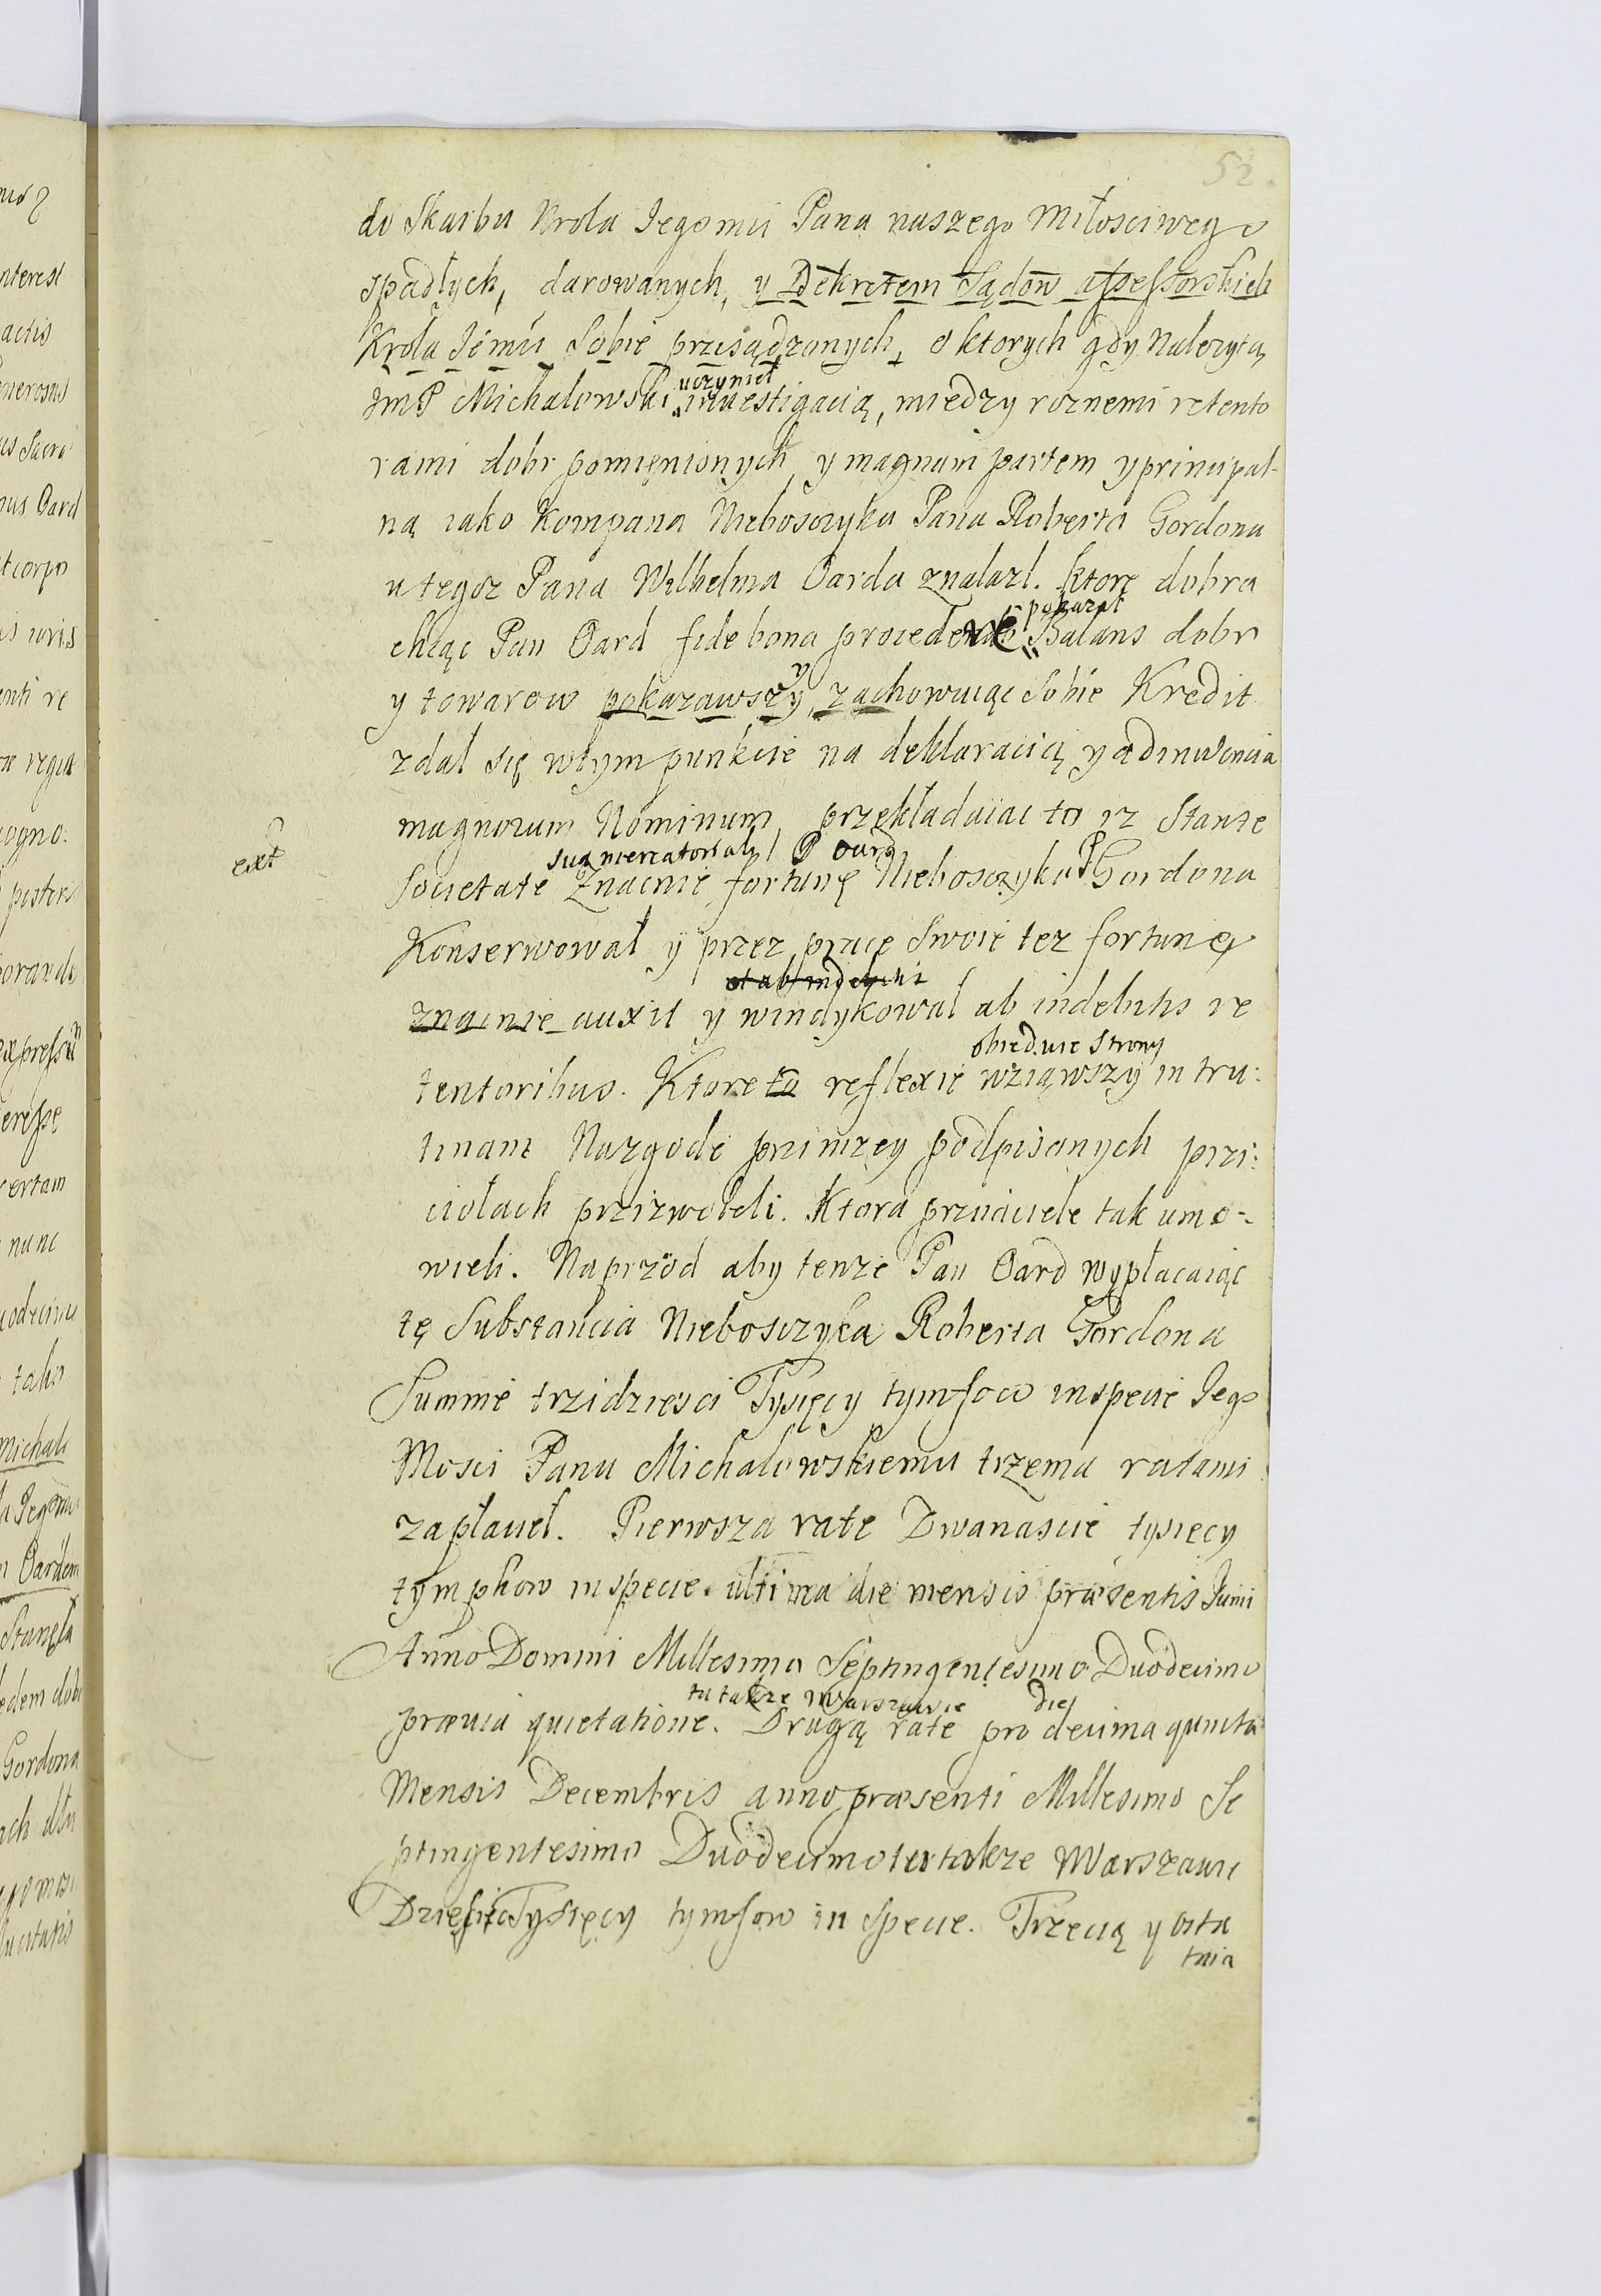 52.
do Skarbu Krola Jegomci Pana naszego Miłosciwego
spadłych, darowanych, y Dekretem Sądow assessorskich
Krola Jemci Sobie przisądzonych, o ktorych gdy Nalezytą
JmP Michalowski uczynieł inuestigacią, miedzy roznemi retento
rami dobr pomięnionych y magnam partem y principal-
ną iako Kompana Nieboszczyka Pana Roberta Gordona
u tegoz Pana Wilhelma Oarda znalazl. ktore dobra
chcąc Pan Oard fide bona procedere pokazał Balans dobr
y towarow pokazawszy, y zachowuiąc Sobie Kredit
zdał się w tym punkcie na deklaracią y adinuencia
magnorum Nominum, przekładaiac to iz Stante
ext
Societate sua mercatoriali P Oard Znacnie fortunę Nieboszczyka P Gordona
Konserwował y przez prace Swoie tez fortunę
znacnie auxit y windykowal et ab indebitis ab indebitis re
tentoribus. Ktore to reflexie obiedwie Strony wziąwszy in tru:
tinam Nazgode przi nizey podpisanych przi:
ciołach przizwoleli. Ktora prziiaciele tak umo-
wieli. Naprzod aby tenze Pan Oard wypłacaiąc
tę Substancia Nieboszczyka Roberta Gordona
Summe trzidziesci Tysięcy tymfow in specie Jego
Mosci Panu Michalowskiemu trzema ratami
zapłacieł. Pierwsza rate Dwanascie tysięcy
tymphow in specie. ultima die mensis præsentis Junii
Anno Domini Millesimo Septingentesimo Duodecimo
præuia quietatione. tu takze w Warszawie Drugą rate pro die decima quinta
Mensis Decembris anno præsenti Millesimo Se
ptingentesimo Duodecimo tu takze w Warszawie
Dziesięc Tysięcy tymfow in specie. Trzecią y osta
tnia